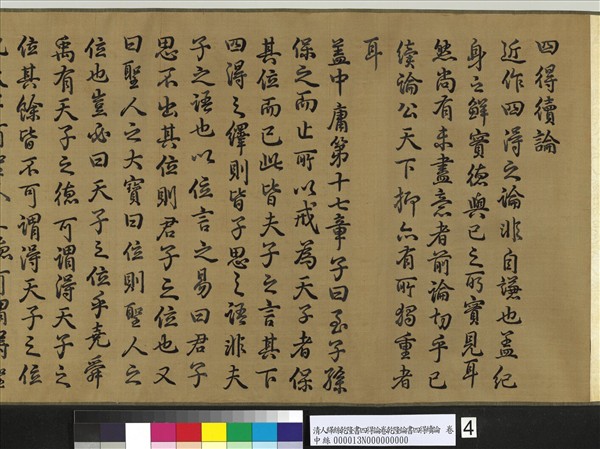 四得續論
近作四得之論非自謙也蓋紀
身之鮮實德與已之所實見耳
然尚有未盡意者前論切乎已
續論公天下抑亦有所獨重者
耳
蓋中庸第十七章子曰至子孫
保之而止所以戒為天子者保
其位而已此皆夫子之言其下
四得之繹則皆子思之語非夫
子之語也以位言之易曰君子
思不出其位則君子之位也又
曰聖人之大寶曰位則聖人之
位也豈必曰天子之位乎堯舜
禹有天子之德可謂得天子之
位其餘皆不可謂得天子之位
清人緙絲乾隆書四得論卷乾隆論書四得續論 卷
中絲 000013N000000000
4